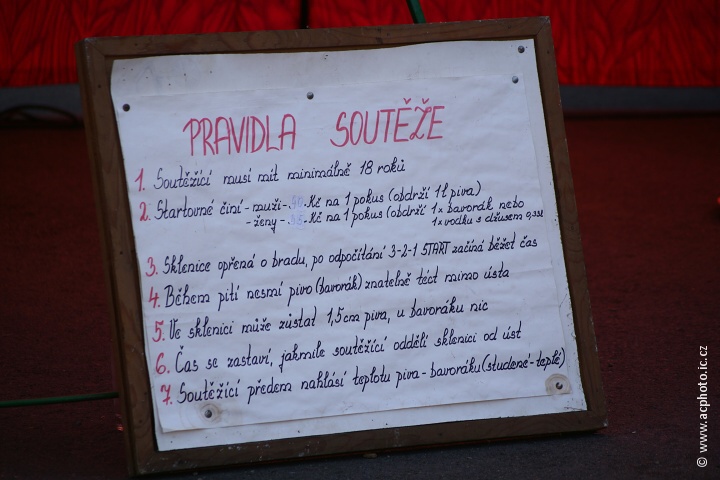 PRAVIDLA SOUTĚŽE
1. Soutěžící musí mít minimálně 18 roků
2. Startovné činí - muži - 30.Kč na 1 pokus (obdrží 1l piva)
- ženy - 35.Kč na 1 pokus (obdrží 1x bavorák nebo
1x vodku s džusem 0,33l
3. Sklenice opřená o bradu, po odpočítání 3-2-1 START začíná běžet čas
4. Během pití nesmí pivo (bavorák) znatelně téct mimo ústa
5. Ve sklenici může zůstat 1,5cm piva, u bavoráku nic
6. Čas se zastaví, jakmile soutěžící oddělí sklenici od úst
7. Soutěžící předem nahlásí teplotu piva - bavoráku (studené - teplé)
© www.acphoto.ic.cz